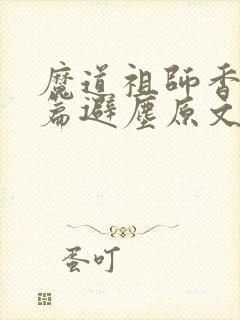 魔道祖師香
篇避塵原文
蛋叮